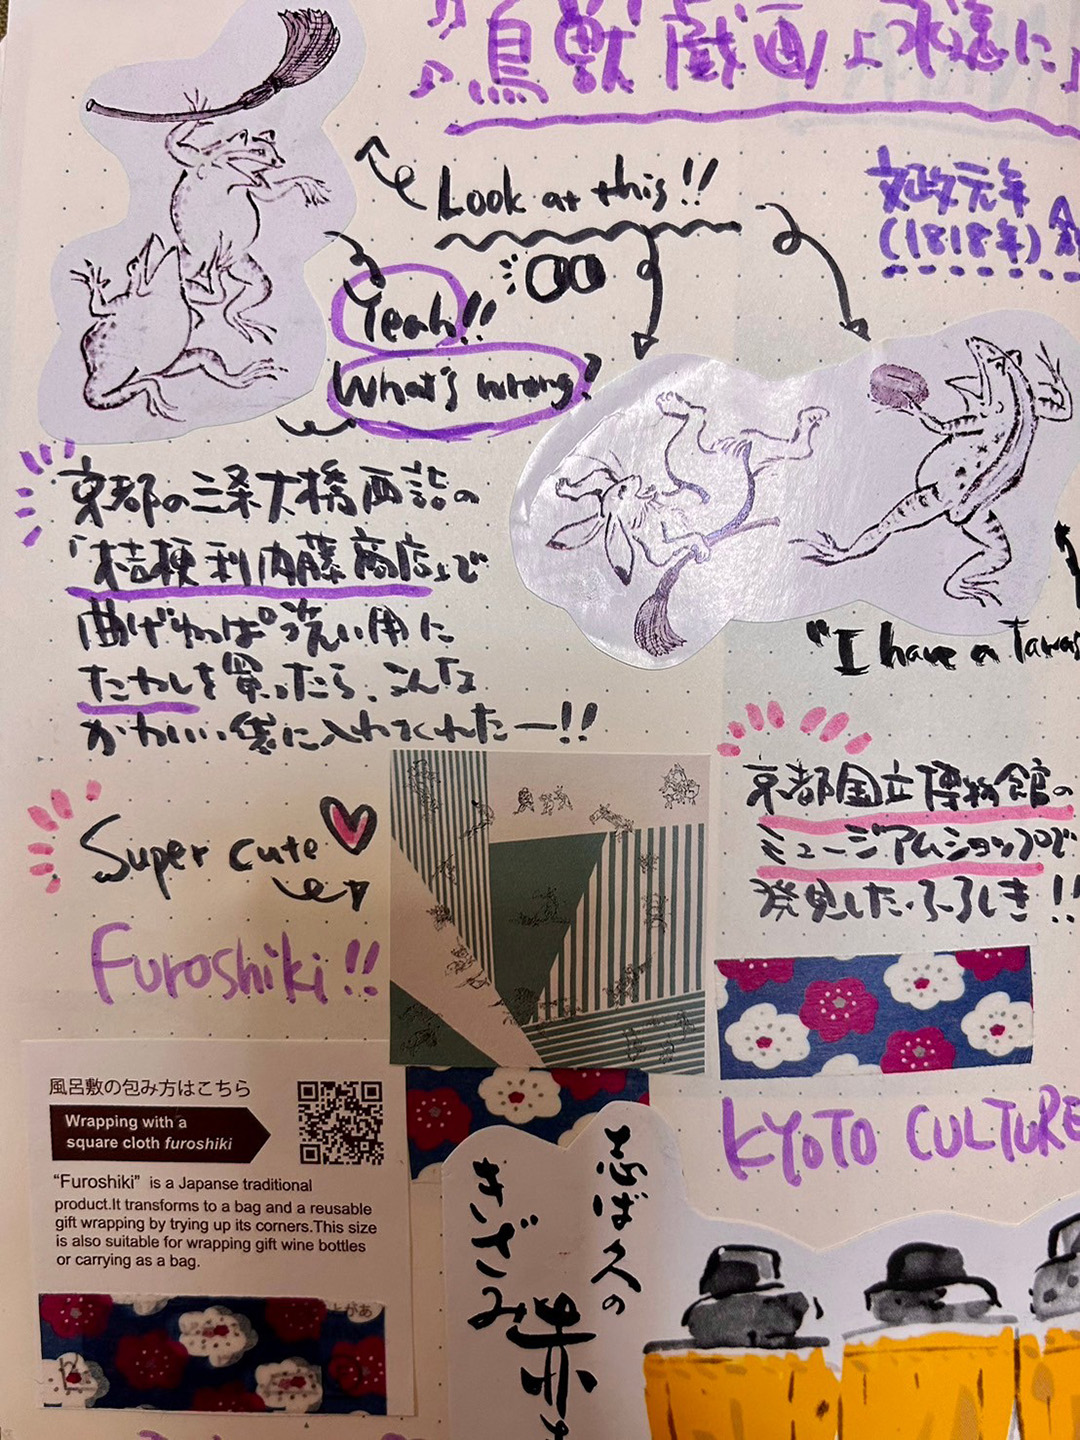 鳥獣戯画よ永遠に
Look at this!!
文政元年
(1818年)
Yeah!!
What's wrong?
京都の三条大橋西詰の
「桔梗利内藤商店」で
曲げわっぱ洗い用に
たわしを買ったら、こんな
かわいい袋に入れてくれたー!!
"I have a Tawas
京都国立博物館の
ミュージアムショップで
発見した、ふろしき!!
Super cute
Furoshiki!!
風呂敷の包み方はこちら
Wrapping with a
square cloth furoshiki
"Furoshiki" is a Japanse traditional
product.It transforms to a bag and a reusable
gift wrapping by trying up its corners.This size
is also suitable for wrapping gift wine bottles
or carrying as a bag.
KYOTO CULTURE
志ば久の
赤
きざみ